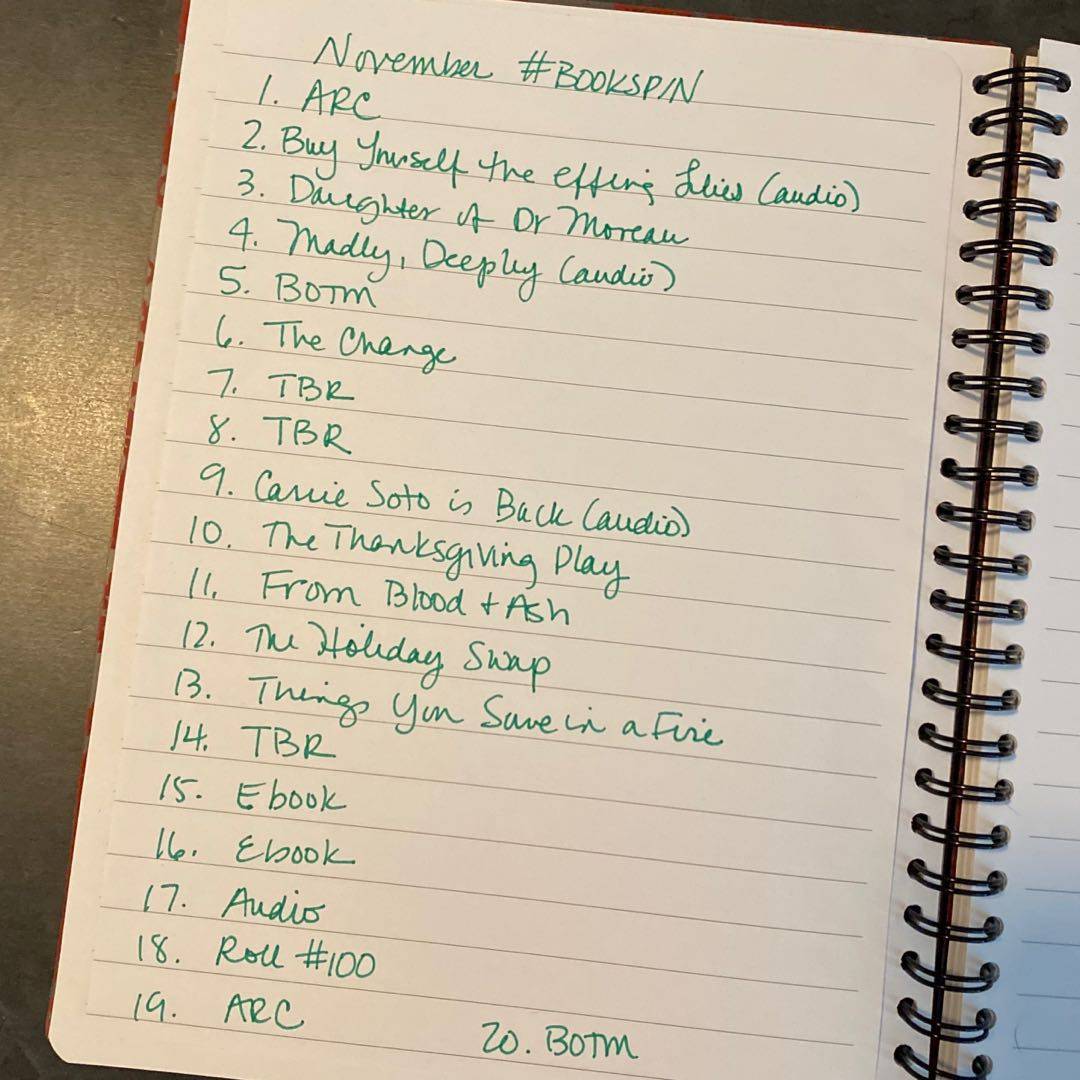 November #BOOKSPIN
1. ARC
2. Buy Yourself the effing Lilies (audio)
3. Daughter of Dr Moreau
4. Madly, Deeply (audio)
5. BOTM
6. The Change
7. TBR
8. TBR
9. Carrie Soto is Back (audio)
10. The Thanksgiving Play
11. From Blood + Ash
12. The Holiday Swap
13. Things You Save in a Fire
14. TBR
15. Ebook
16. Ebook
17. Audio
18. Roll #100
19. ARC 20. BOTM